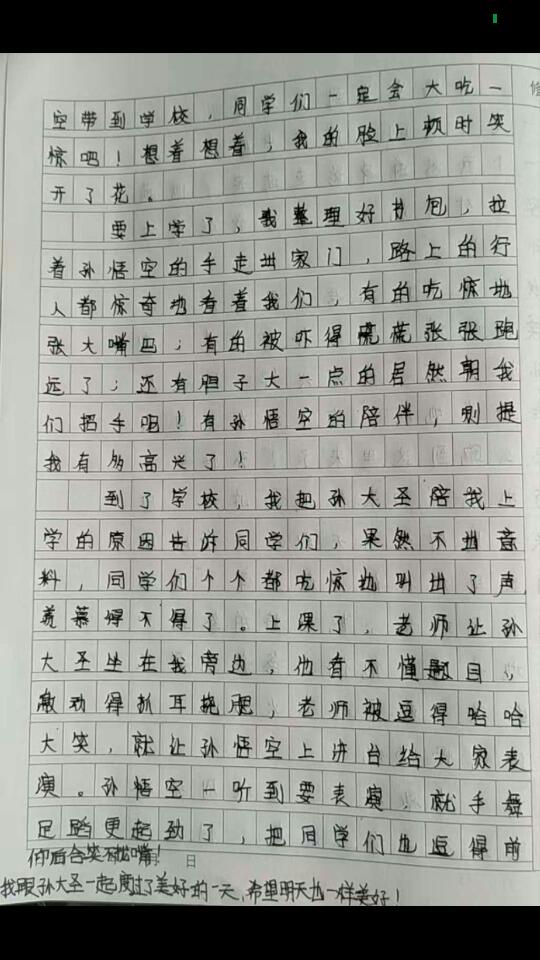 空带到学校，同学们一定会大吃一
惊吧！想着想着，我的脸上顿时笑
开了花。
要上学了，我整理好书包，拉
着孙悟空的手走出家门，路上的行
人都惊奇地看着我们，有的吃惊地
张大嘴巴；有的被吓得慌慌张张跑
远了；还有胆子大一点的居然朝我
们招手呢！有孙悟空的陪伴，别提
我有多高兴了！
到了学校，我把孙大圣陪我上
学的原因告诉同学们，果然不出意
料，同学们个个都吃惊地叫出了声，
羡慕得不得了。上课了，老师让孙
大圣坐在我旁边，他看不懂题目，
激动得抓耳挠腮，老师被逗得哈哈
大笑，就让孙悟空上讲台给大家表
演。孙悟空一听到要表演，就手舞
足蹈更起劲了，把同学们也逗得前
仰后合笑不拢嘴！ 日
我跟孙大圣一起度过了美好的一天，希望明天也一样美好！